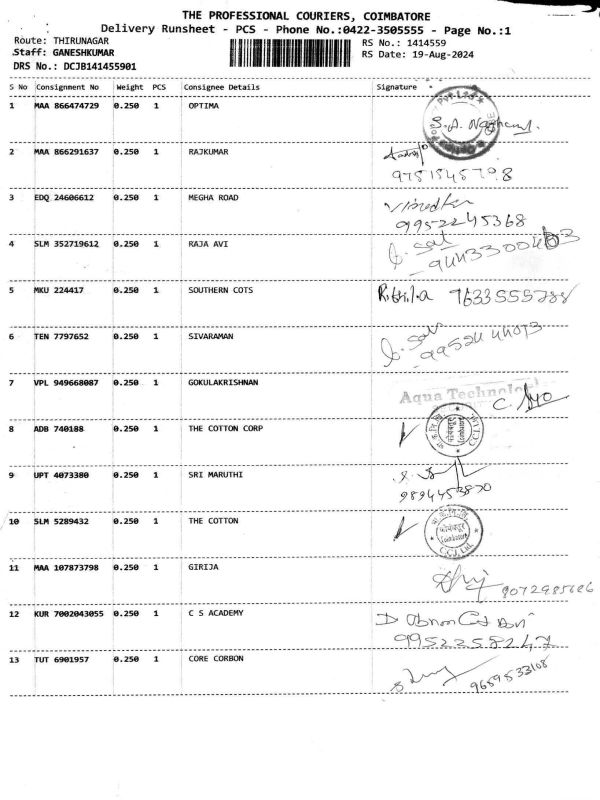 THE PROFESSIONAL COURIERS, COIMBATORE
Delivery Runsheet - PCS - Phone No.:0422-3505555 - Page No.:1
Route: THIRUNAGAR
RS No.: 1414559
Staff: GANESHKUMAR
RS Date: 19-Aug-2024
DRS No.: DCJB141455901
S No Consignment No Weight PCS Consignee Details Signature
1 MAA 866474729 0.250 1 OPTIMA
2 MAA 866291637 0.250 1 RAJKUMAR
9751545798
3 EDQ 24606612 0.250 1 MEGHA ROAD
9952245368
4 SLM 352719612 0.250 1 RAJA AVI
5 MKU 224417 0.250 1 SOUTHERN COTS
6 TEN 7797652 0.250 1 SIVARAMAN
7 VPL 949668087 0.250 1 GOKULAKRISHNAN Aqua
8 ADB 740188 0.250 1 THE COTTON CORP
9 UPT 4073380 0.250 1 SRI MARUTHI
10 SLM 5289432 0.250 1 THE COTTON
11 MAA 107873798 0.250 1 GIRIJA
12 KUR 7002043055 0.250 1 C S ACADEMY
9952258247
13 TUT 6901957 0.250 1 CORE CORBON
9659533108